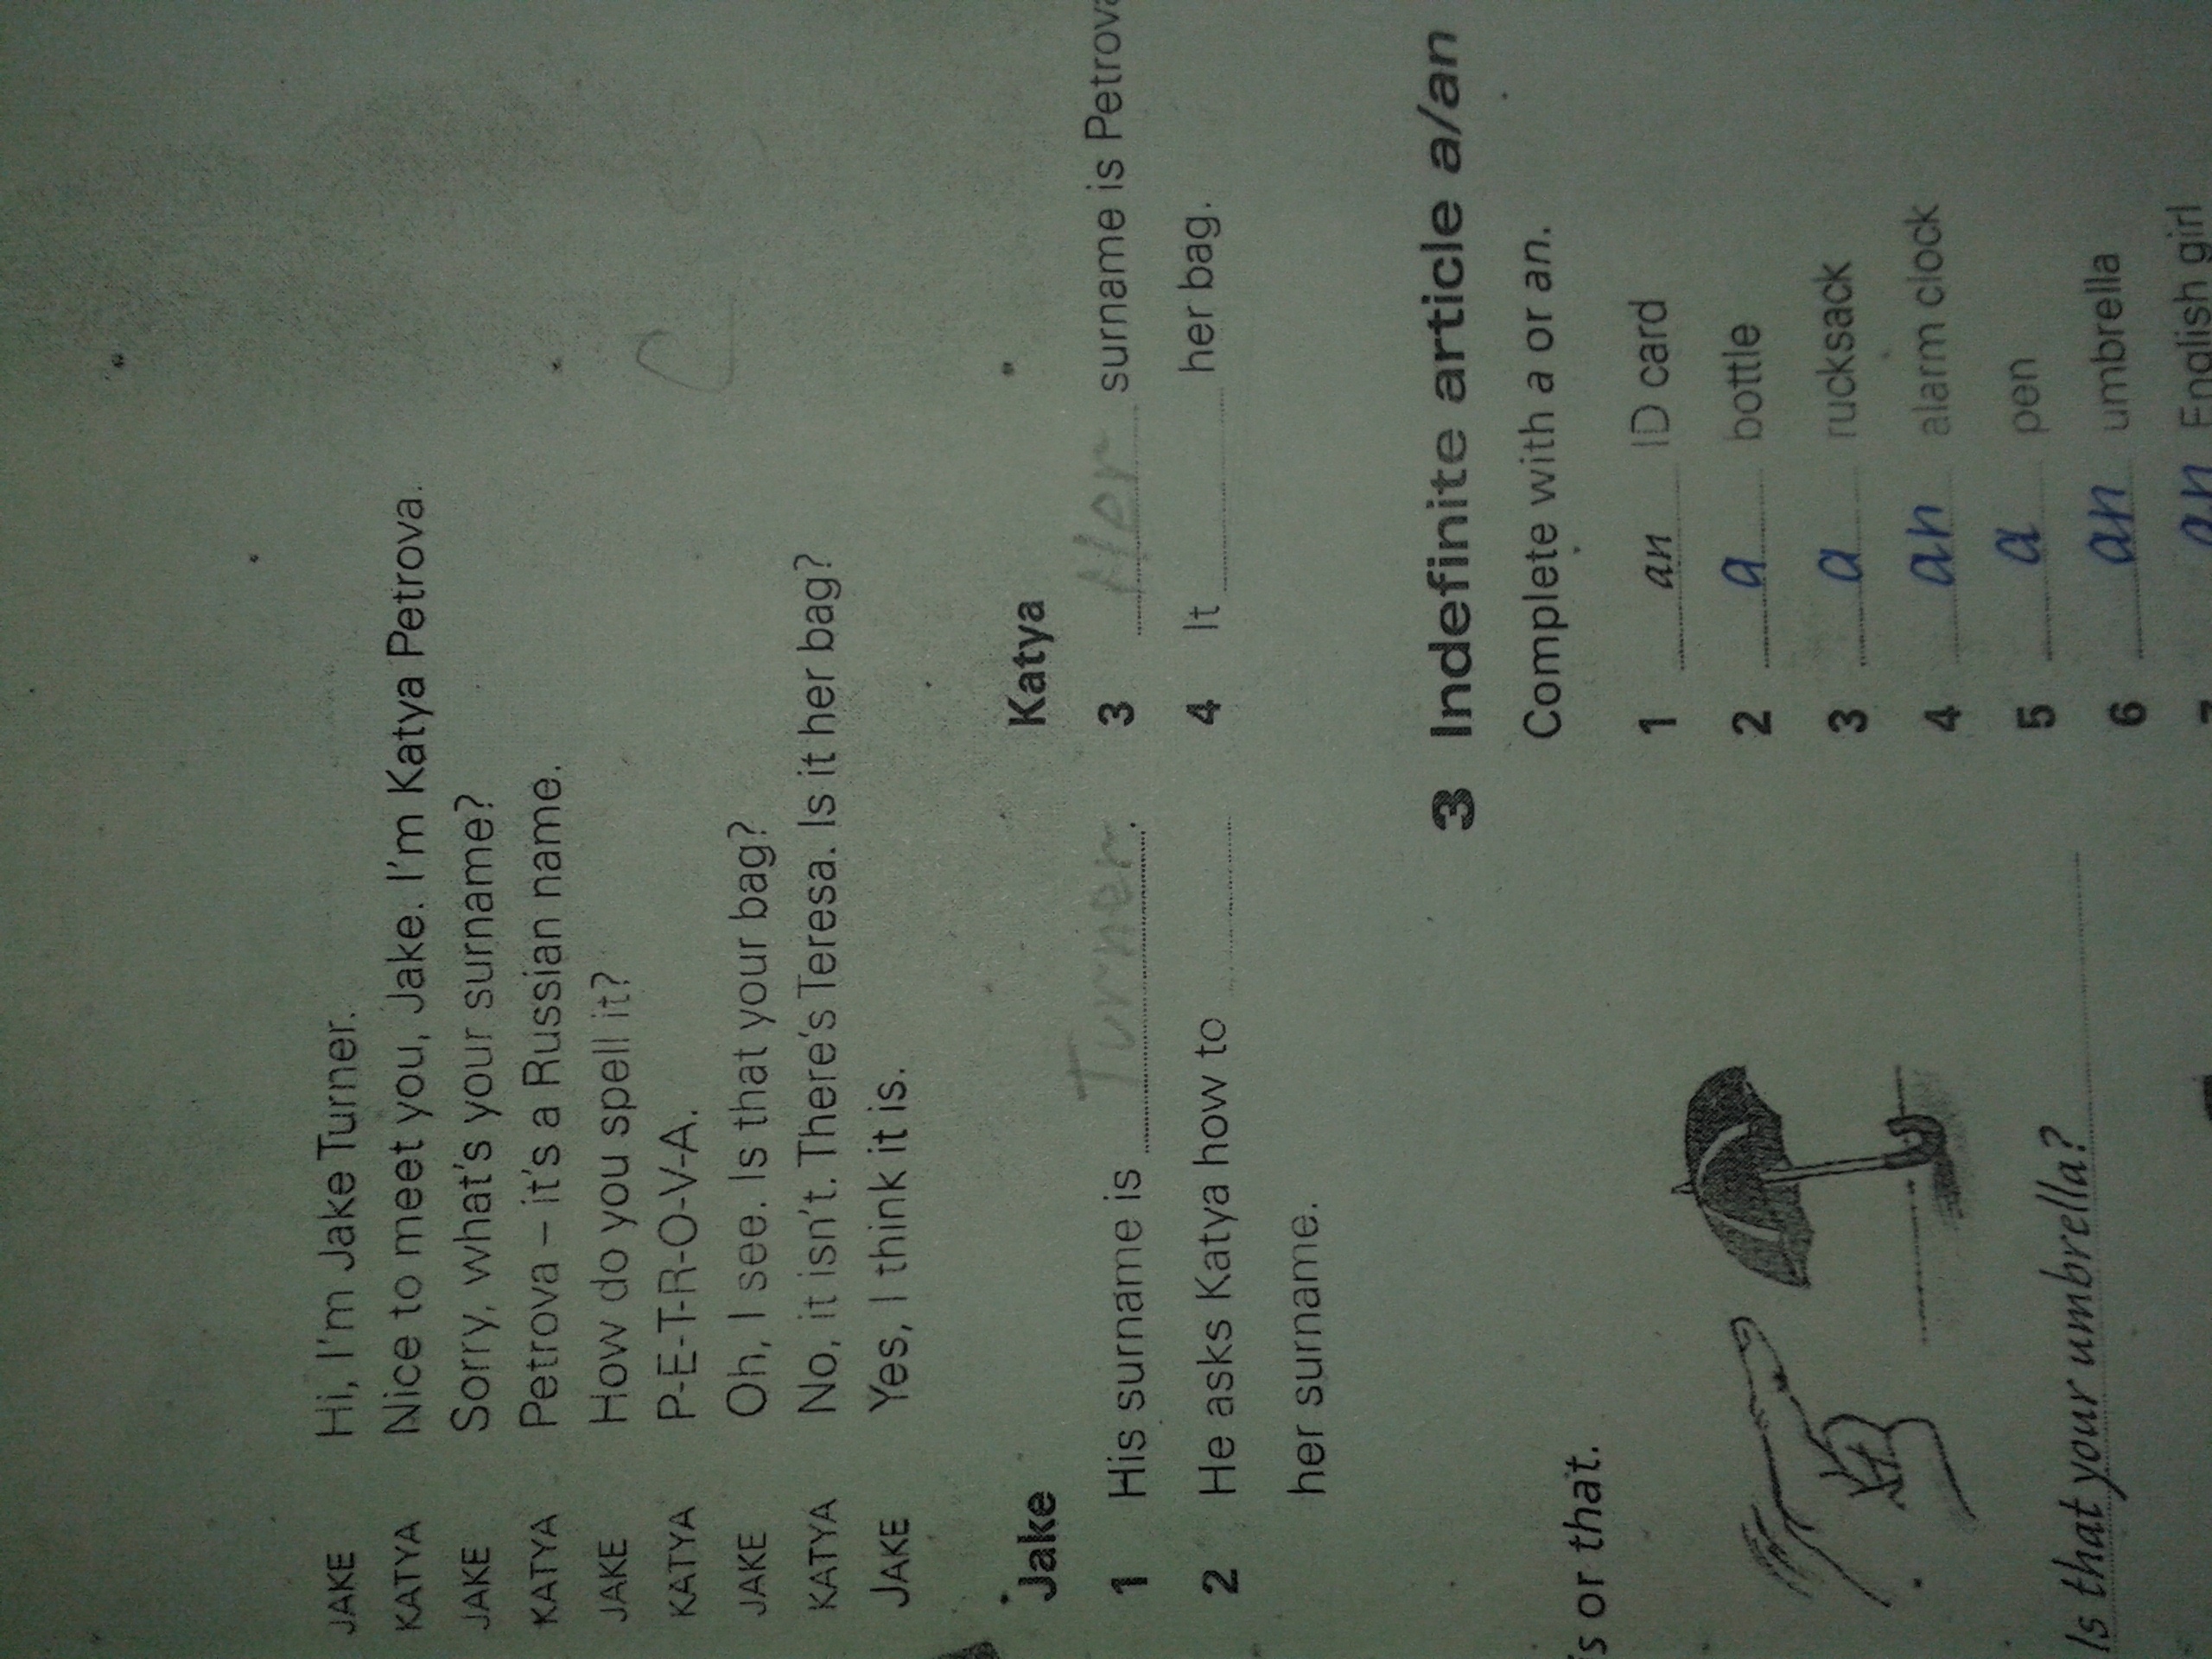 JAKE Hi, I'm Jake Turner.
KATYA Nice to meet you, Jake. I'm Katya Petrova.
JAKE Sorry, what's your surname?
KATYA Petrova – it's a Russian name.
JAKE How do you spell it?
KATYA P-E-T-R-O-V-A.
JAKE Oh, I see. Is that your bag?
KATYA No, it isn't. There's Teresa. Is it her bag?
JAKE Yes, I think it is.
Jake
1 His surname is Turner.
2 He asks Katya how to
her surname.
Katya
3 Her surname is Petrova
4 It her bag.
s or that.
Is that your umbrella?
3 Indefinite article a/an
Complete with a or an.
1 an ID card
2 a bottle
3 a rucksack
4 an alarm clock
5 a pen
6 an umbrella
7 an English girl